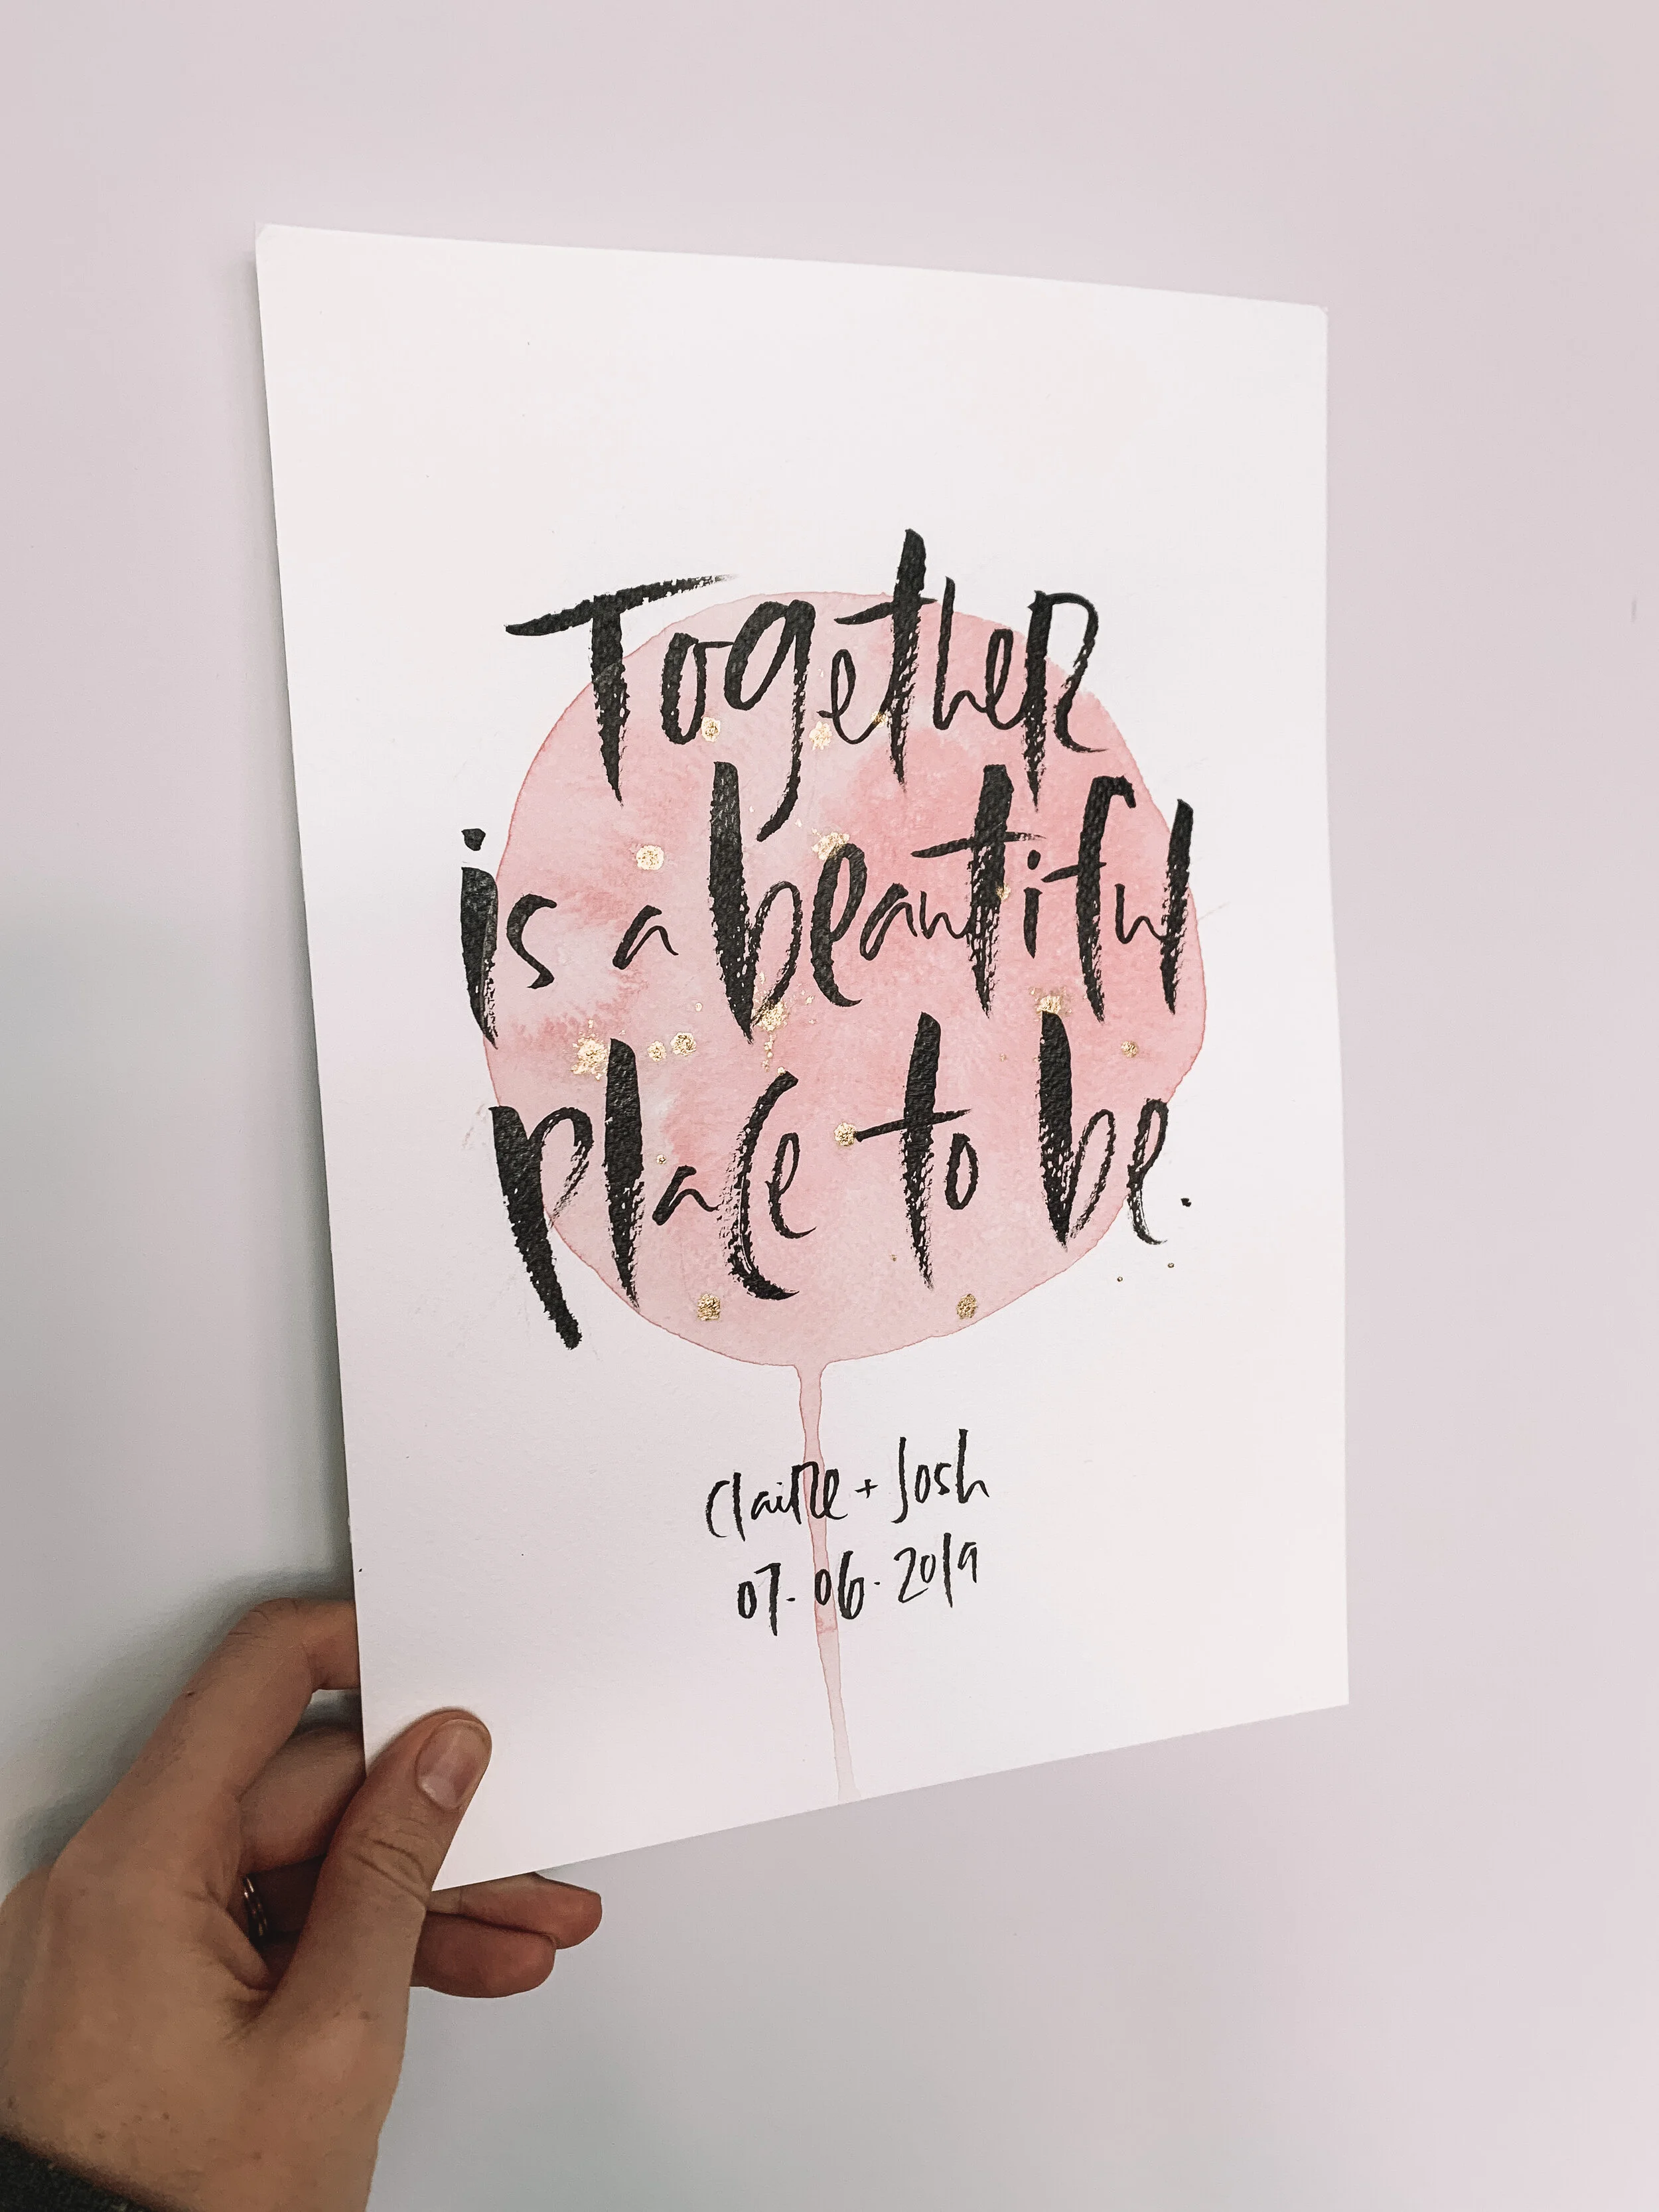 Together
is a beautiful
place to be.
Claire + Josh
07.06.2019